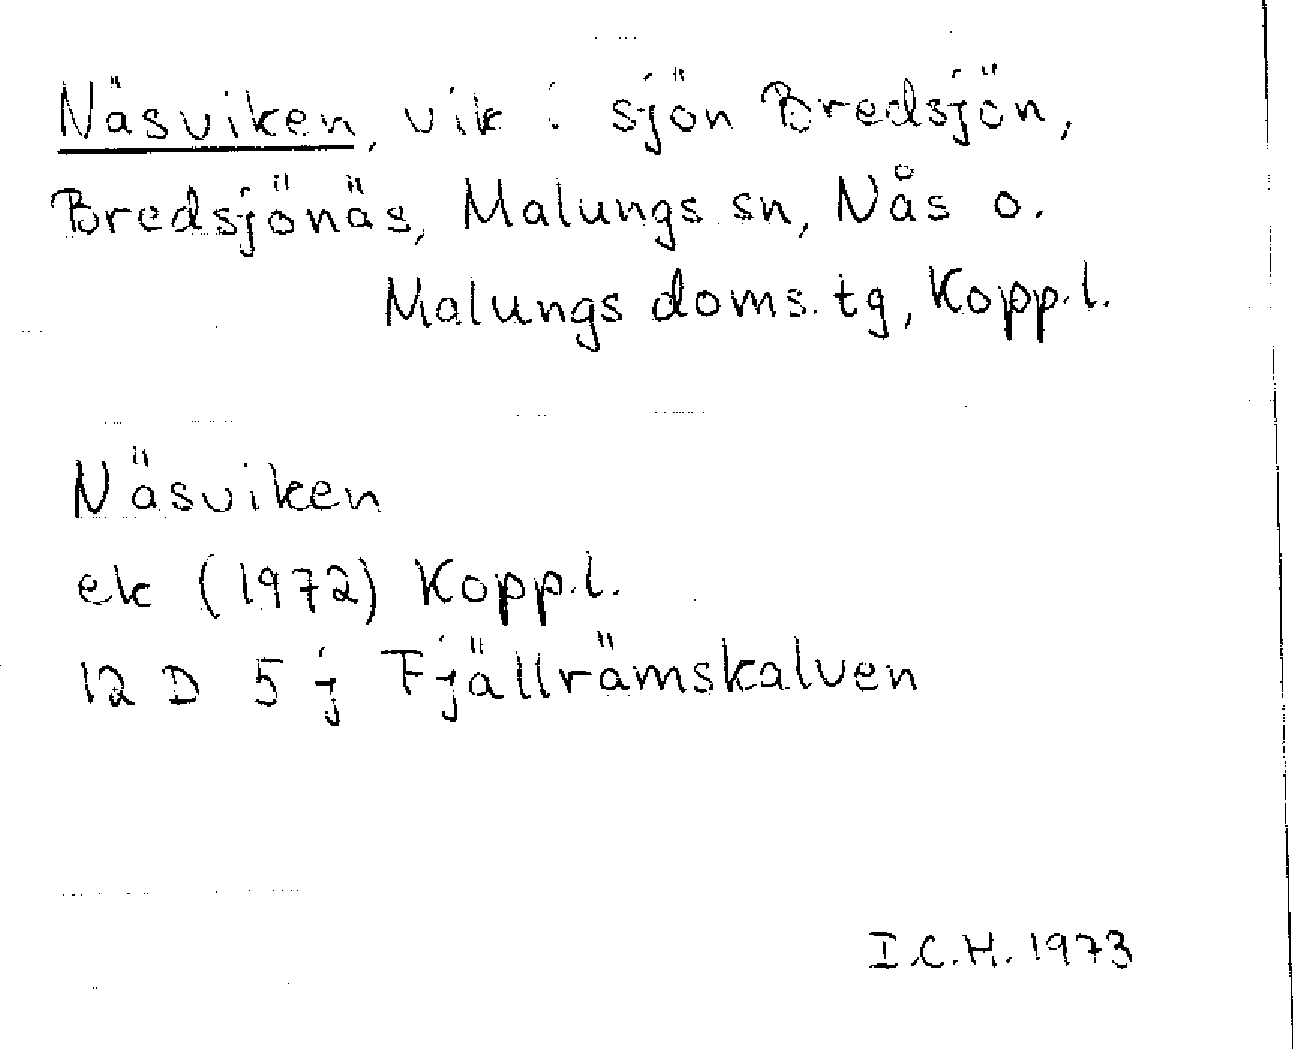 Näsviken, vik i sjön Bredsjön,
Bredsjönäs, Malungs sn, Nås o.
Malungs doms.tg, Kopp.l.
Näsviken
ek (1972) Kopp.l.
12 D 5 j Fjällrämskalven
I.C.H. 1973